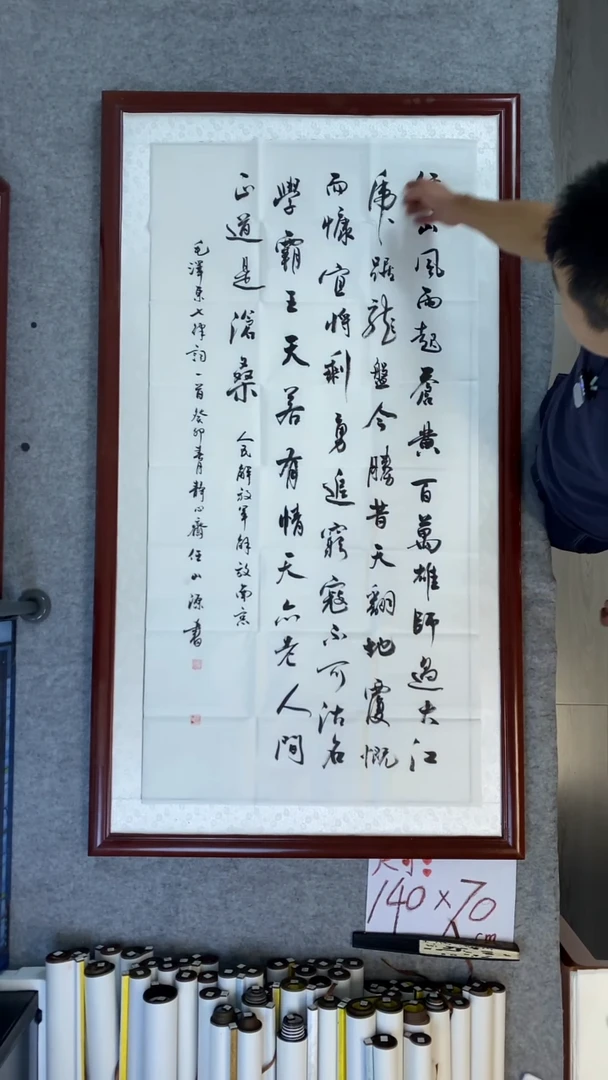 山風雨起蒼黃百萬雄師過大江
虎踞龍盤今勝昔天翻地覆慨
而慷宜將剩勇追窮寇不可沽名
學霸王天若有情天亦老人間
正道是滄桑 人民解放軍解放南京
毛澤東七律詞一首癸卯春月靜心齋任山源書
尺寸:
140×70
cm